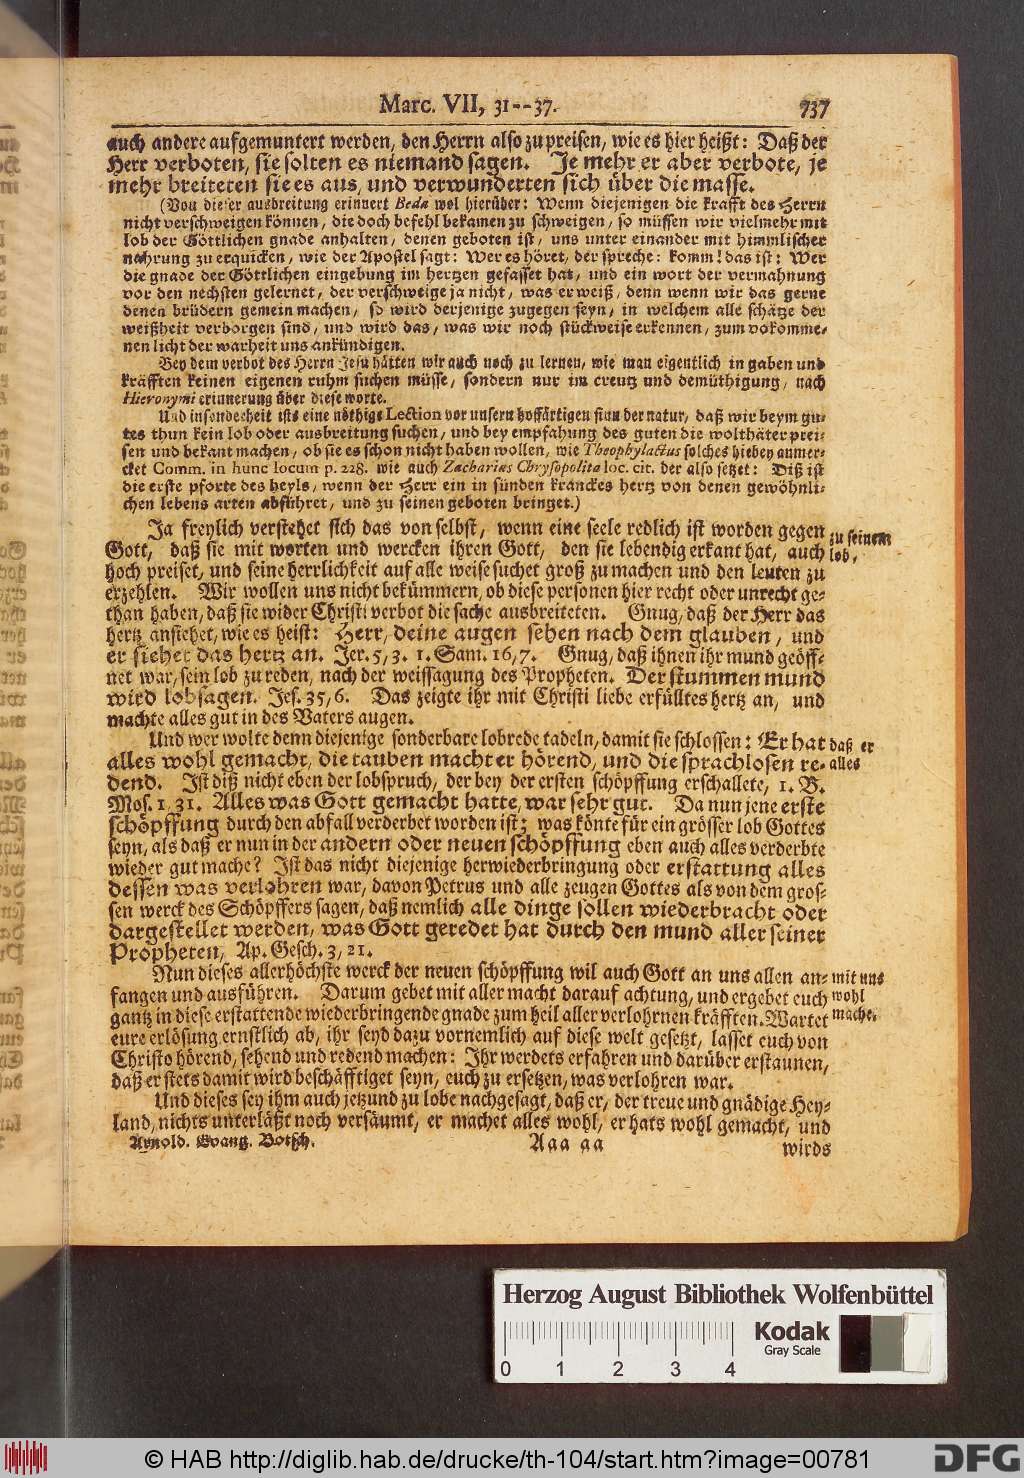 Marc. VII, 31--37.
737
auch andere aufgemuntert werden, den Herrn also zu preisen, wie es hier heißt: Daß der
Herr verboten, sie solten es niemand sagen. Je mehr er aber verbote, je
mehr breiteten sie es aus, und verwunderten sich über die masse.
(Von dieser ausbreitung erinnert Beda wol hierüber: Wenn diejenigen die krafft des Herrn
nicht verschweigen können, die doch befehl bekamen zu schweigen, so müssen wir vielmehr mit
lob der Göttlichen gnade anhalten, denen geboten ist, uns unter einander mit himmlischer
nahrung zu erquicken, wie der Apostel sagt: Wer es höret, der spreche: komm! das ist: Wer
die gnade der Göttlichen eingebung im hertzen gefasset hat, und ein wort der vermahnung
vor den nechsten gelernet, der verschweige ja nicht, was er weiß, denn wenn wir das gerne
denen brüdern gemein machen, so wird derjenige zugegen seyn, in welchem alle schätze der
weißheit verborgen sind, und wird das, was wir noch stückweise erkennen, zum vokomme-
nen licht der warheit uns ankündigen.
Bey dem verbot des Herrn Jesu hätten wir auch noch zu lernen, wie man eigentlich in gaben und
kräfften keinen eigenen ruhm suchen müsse, sondern nur im creutz und demüthigung, nach
Hieronymi erinnerung über diese worte.
Und insonderheit ists eine nöthige Lection vor unsern hoffärtigen sinn der natur, daß wir beym gu-
tes thun kein lob oder ausbreitung suchen, und bey empfahung des guten die wolthäter prei-
sen und bekant machen, ob sie es schon nicht haben wollen, wie Theophylactus solches hiebey anmer-
cket Comm. in hunc locum p. 228. wie auch Zacharias Chrysopolita loc. cit. der also setzet: Diß ist
die erste pforte des heyls, wenn der Herr ein in sünden kranckes hertz von denen gewöhnli-
chen lebens arten abführet, und zu seinen geboten bringet.)
Ja freylich verstehet sich das von selbst, wenn eine seele redlich ist worden gegen
Gott, daß sie mit worten und wercken ihren Gott, den sie lebendig erkant hat, auch
hoch preiset, und seine herrlichkeit auf alle weise suchet groß zu machen und den leuten zu
erzehlen. Wir wollen uns nicht bekümmern, ob diese personen hier recht oder unrecht ge-
than haben, daß sie wider Christi verbot die sache ausbreiteten. Gnug, daß der Herr das
hertz ansiehet, wie es heist: Herr, deine augen sehen nach dem glauben, und
er siehet das hertz an. Jer. 5, 3. 1. Sam. 16, 7. Gnug, daß ihnen ihr mund geöff-
net war, sein lob zu reden, nach der weissagung des Propheten. Der stummen mund
wird lobsagen. Jes. 35, 6. Das zeigte ihr mit Christi liebe erfülltes hertz an, und
machte alles gut in des Vaters augen.
zu seinem
lob,
Und wer wolte denn diejenige sonderbare lobrede tadeln, damit sie schlossen: Er hat
alles wohl gemacht, die tauben macht er hörend, und die sprachlosen re-
dend. Ist diß nicht eben der lobspruch, der bey der ersten schöpffung erschallete, 1. B.
Mos. 1, 31. Alles was Gott gemacht hatte, war sehr gut. Da nun jene erste
schöpffung durch den abfall verderbet worden ist; was könte für ein grösser lob Gottes
seyn, als daß er nun in der andern oder neuen schöpffung eben auch alles verderbte
wieder gut mache? Ist das nicht diejenige herwiederbringung oder erstattung alles
dessen was verlohren war, davon Petrus und alle zeugen Gottes als von dem gros-
sen werck des Schöpffers sagen, daß nemlich alle dinge sollen wiederbracht oder
dargestellet werden, was Gott geredet hat durch den mund aller seiner
Propheten, Ap. Gesch. 3, 21.
daß er
alles
Nun dieses allerhöchste werck der neuen schöpffung wil auch Gott an uns allen an-
fangen und ausführen. Darum gebet mit aller macht darauf achtung, und ergebet euch
gantz in diese erstattende wiederbringende gnade zum heil aller verlohrnen kräfften. Wartet
eure erlösung ernstlich ab, ihr seyd dazu vornemlich auf diese welt gesetzt, lasset euch von
Christo hörend, sehend und redend machen: Ihr werdets erfahren und darüber erstaunen,
daß er stets damit wird beschäfftiget seyn, euch zu ersetzen, was verlohren war.
mit uns
wohl
mache.
Und dieses sey ihm auch jetzund zu lobe nachgesagt, daß er, der treue und gnädige Hey-
land, nichts unterläßt noch versäumt, er machet alles wohl, er hats wohl gemacht, und
Arnold. Evang. Botsch.
Aaa aa
wirds
Herzog August Bibliothek Wolfenbüttel
Kodak
Gray Scale
0 1 2 3 4
© HAB http://diglib.hab.de/drucke/th-104/start.htm?image=00781
DFG